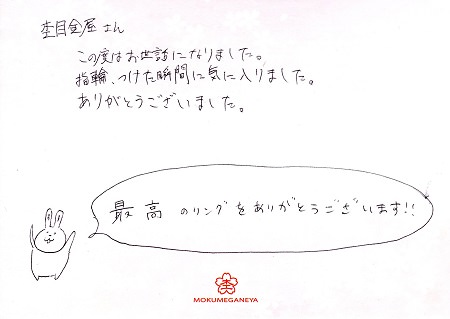 杢目金屋さん
この度はお世話になりました。
指輪、つけた瞬間に気に入りました。
ありがとうございました。
最高のリングをありがとうございます!!
MOKUMEGANEYA